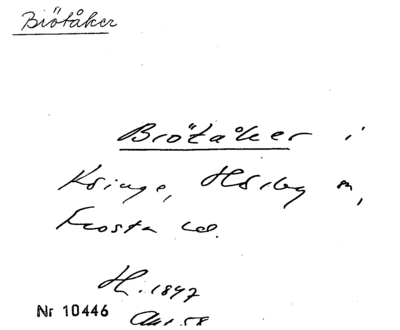 Brötåker
Brötåker i
Kringe, Hörby sn,
Frosta hd.
H. 1847
Nr 10446